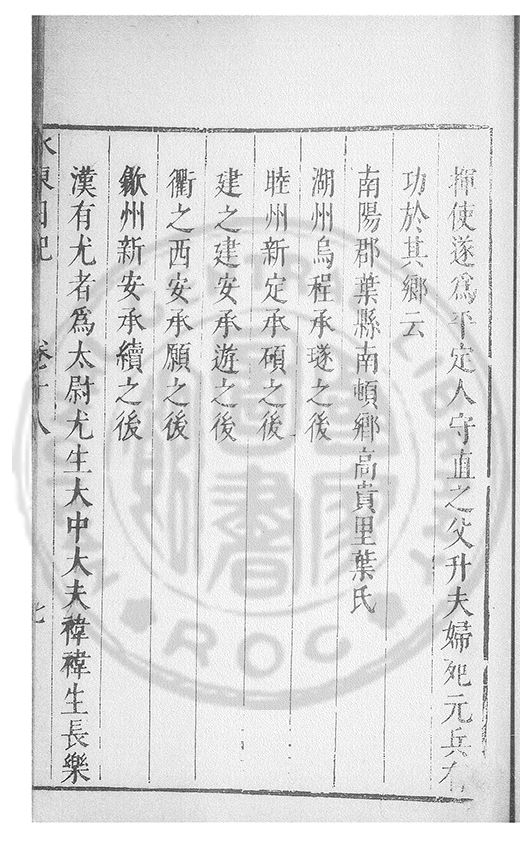 揮使遂爲平定人守直之父升夫婦死元兵有
功於其鄉云
南陽郡葉縣南頓鄉高貴里葉氏
湖州烏程承㻽之後
睦州新定承碩之後
建之建安承遊之後
衢之西安承願之後
歙州新安承續之後
漢有尤者為太尉尤生大中大夫禕禕生長樂
水東日記 卷十八 七